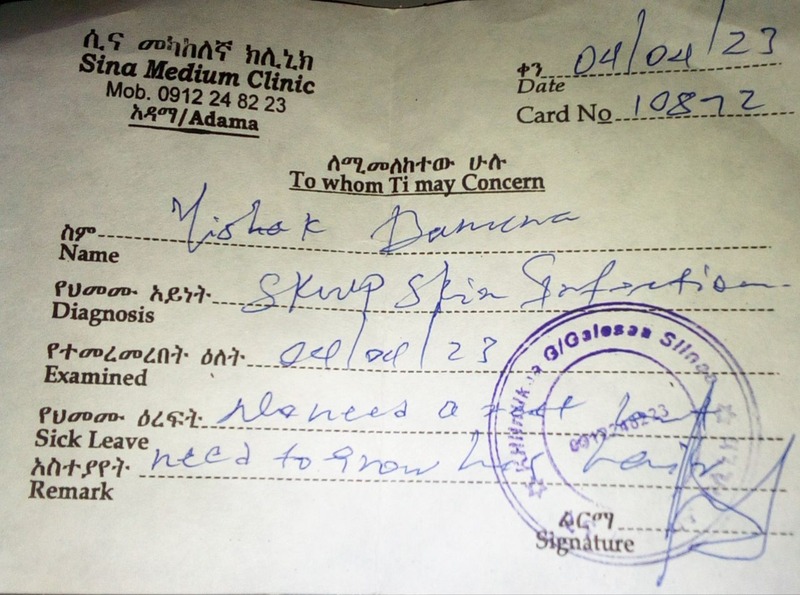 ሲና መካከለኛ ክሊኒክ
Sina Medium Clinic
Mob. 0912 24 82 23
አዳማ/Adama
ቀን 04/04/23
Date
Card No 10872
ለሚመለከተው ሁሉ
To whom Ti may Concern
ስም Yishak
Name
የህመሙ አይነት Skin Infection
Diagnosis
የተመረመረበት ዕለት 04/04/23
Examined
የህመሙ ዕረፍት need a rest but
Sick Leave
አስተያየት need to grow his hair
Remark
G/Galesaa Siinaa
0912248223
ፊርማ
Signature